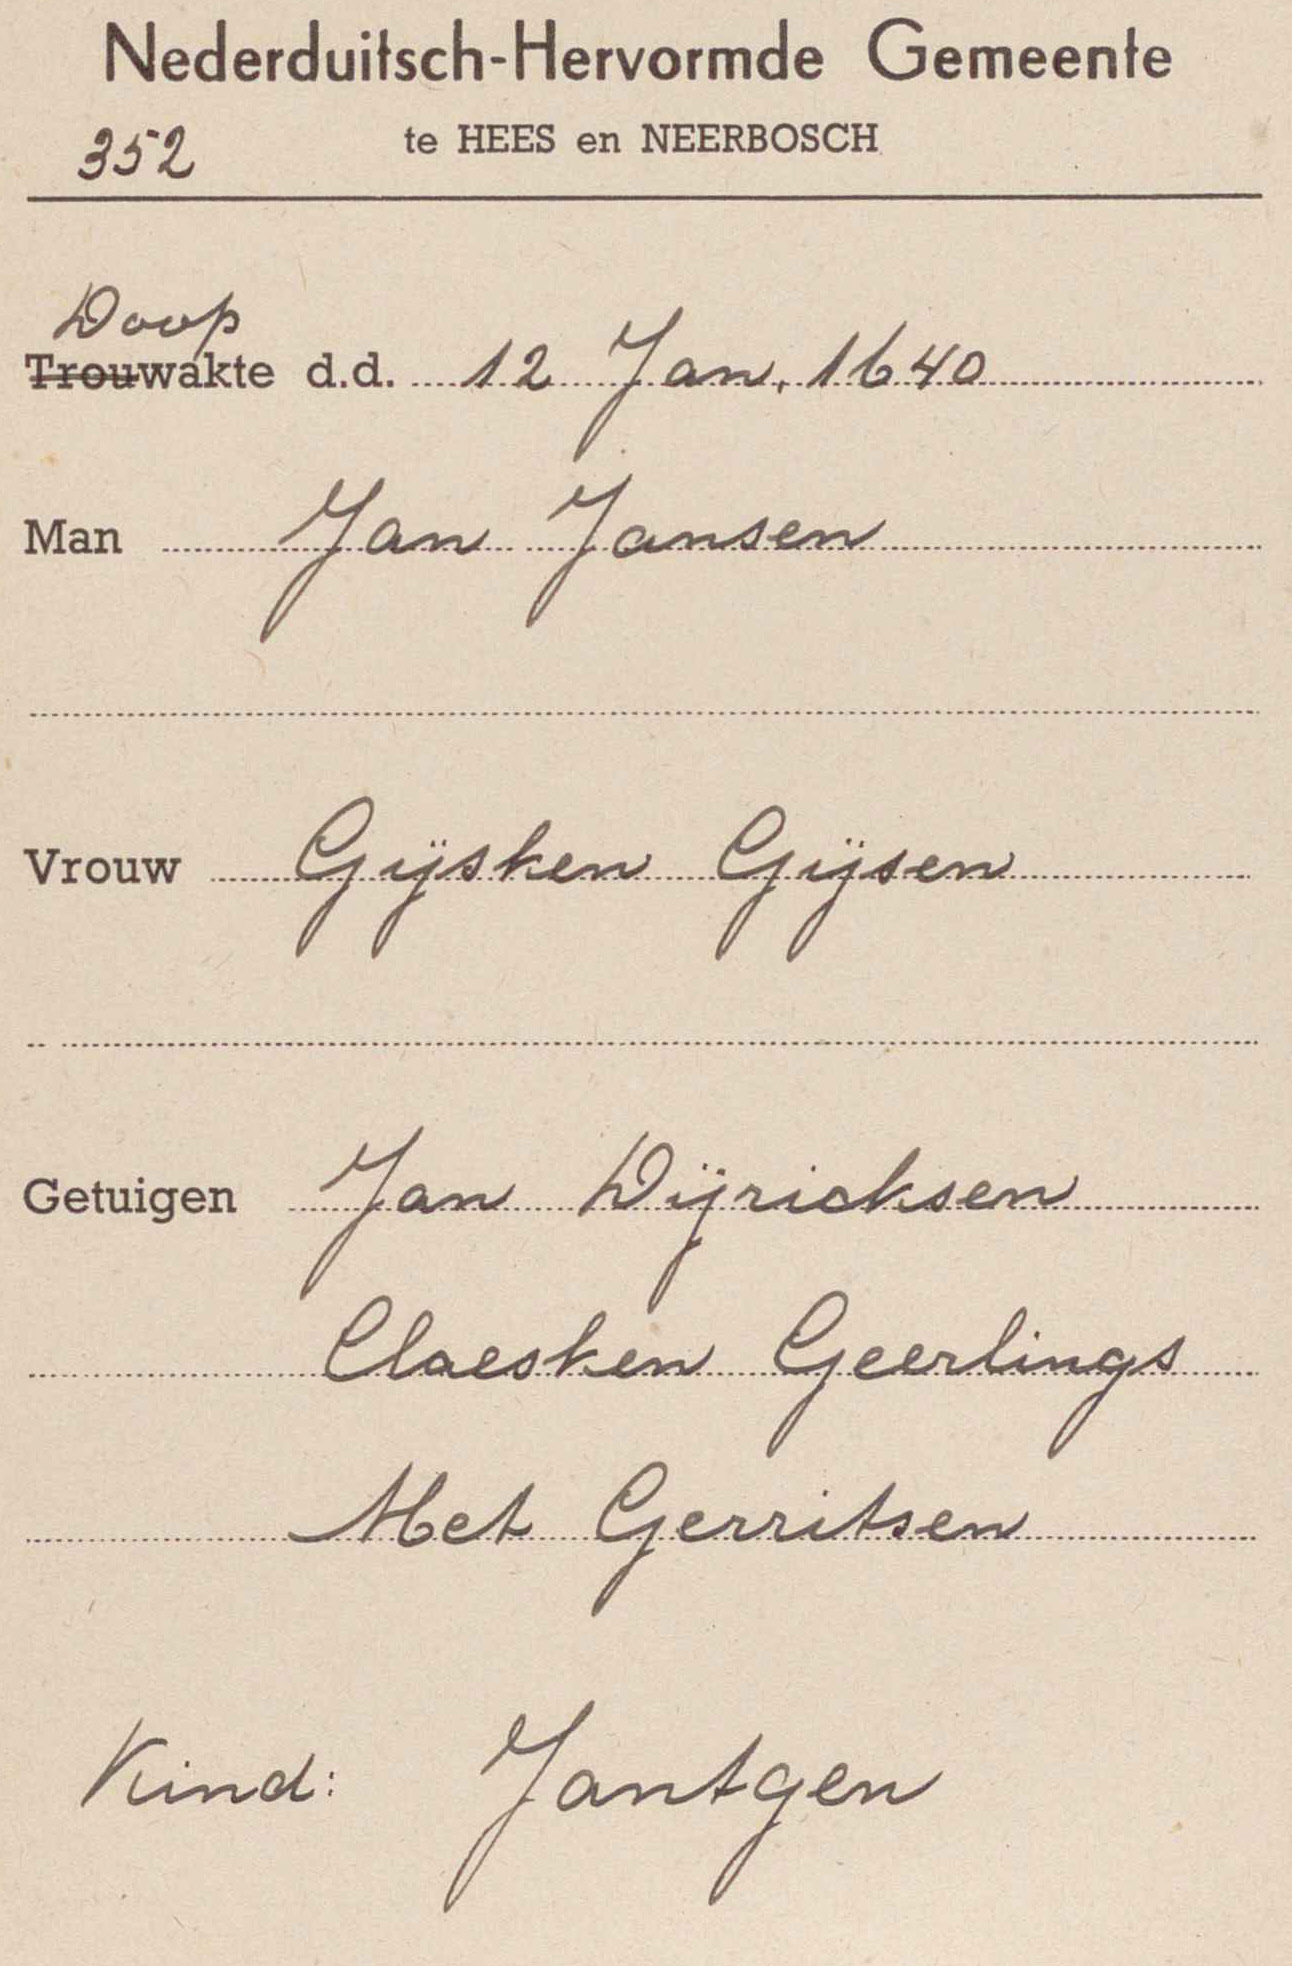 Nederduitsch-Hervormde Gemeente
352 te HEES en NEERBOSCH
Doop
Trouwakte d.d. 12 Jan. 1640
Man Jan Jansen
Vrouw Gijsken Gijsen
Getuigen Jan Dijricksen
Claesken Geerlings
Met Gerritsen
Kind: Jantgen